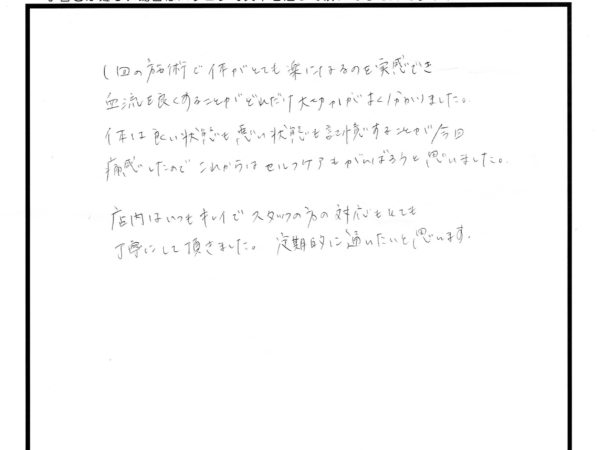 1回の施術で体がとても楽になるのを実感でき
血流を良くすることがどれだけ大切かがよく分かりました。
体は良い状態も悪い状態も記憶することが今回
痛感したので これからはセルフケアもがんばろうと思いました。
店内はいつもキレイで スタッフの方の対応もとても
丁寧にして頂きました。 定期的に通いたいと思います。